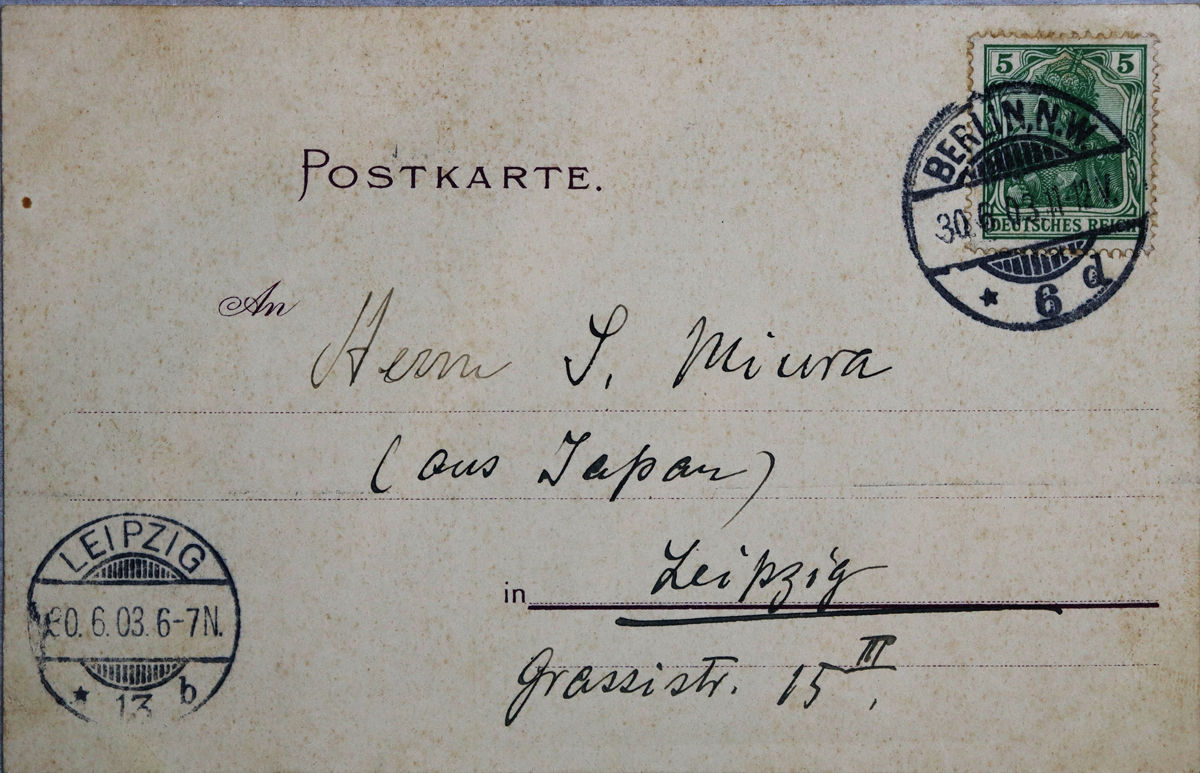 5 5
BERLIN, N.W.
30.6.03.11-12V.
DEUTSCHES REICH
* 6 d
POSTKARTE.
An Herrn S. Miura
(aus Japan)
in Leipzig
Grassistr. 15 III.
LEIPZIG
30.6.03.6-7N.
* 13 b